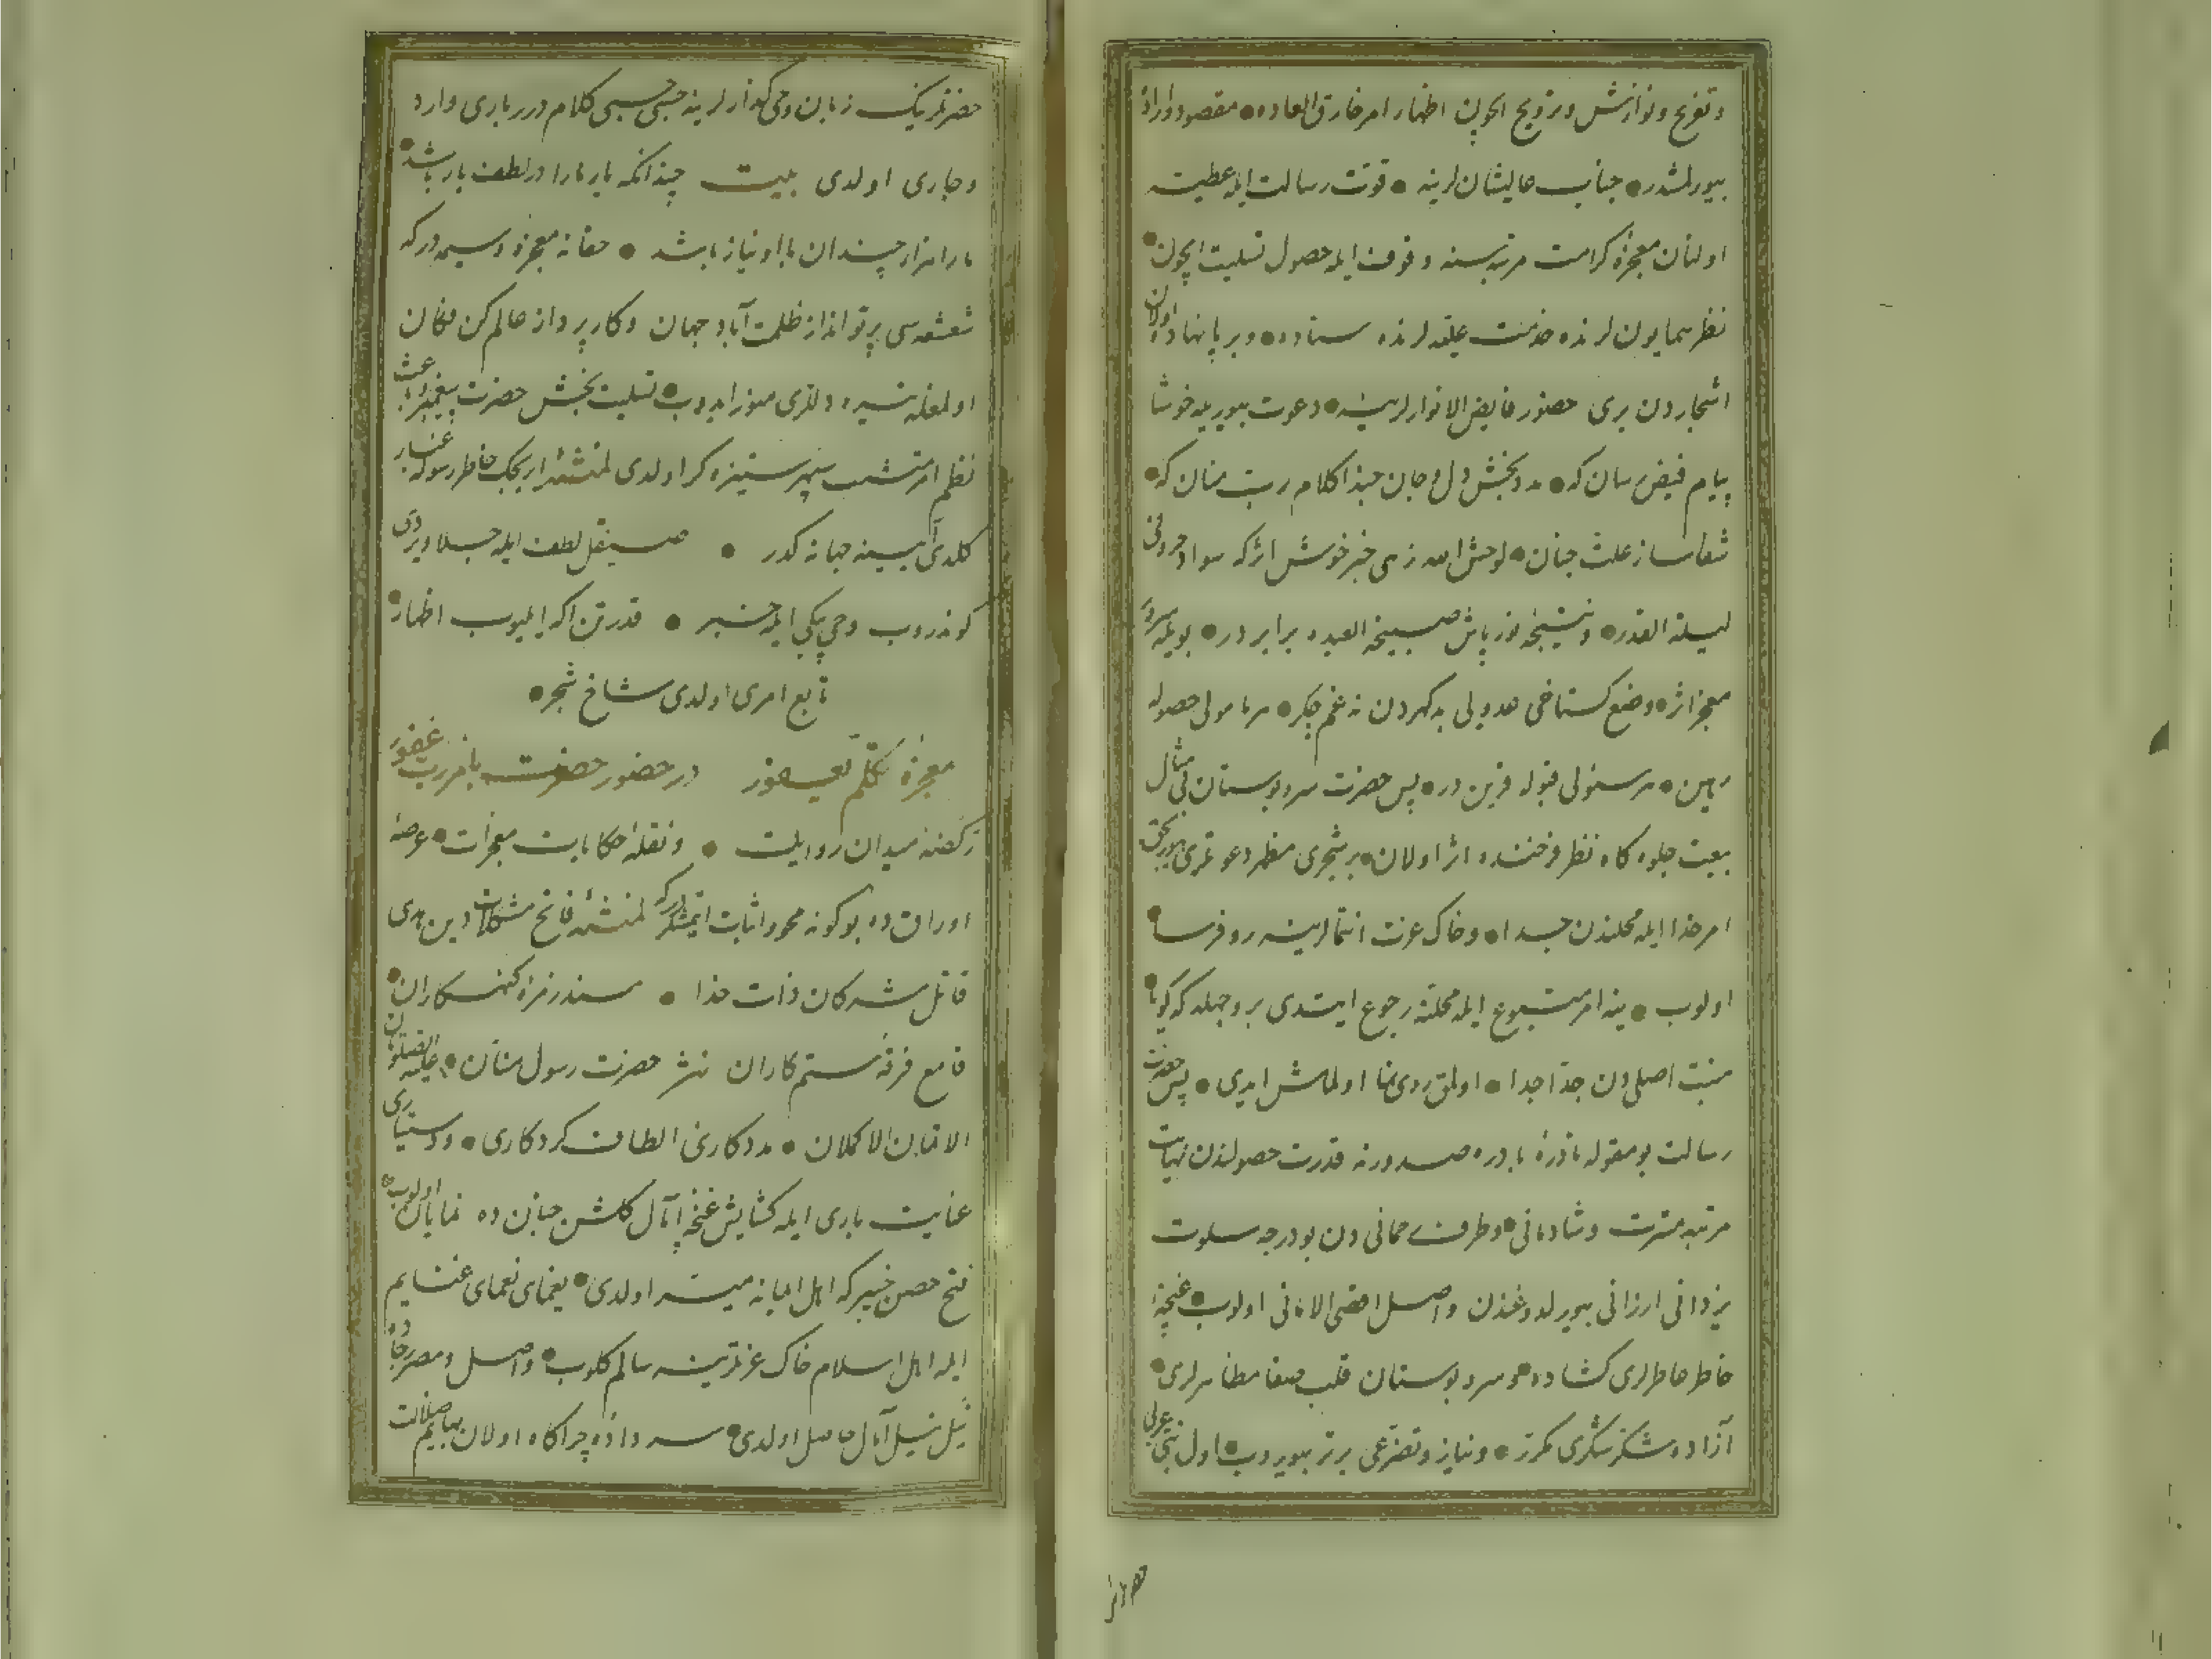 وتفریح ونوازش وترویج ایچون اظهار امر خارق العاده • مقصود و اراده
بیورلمشدر • جناب عالیشان لرینه • قوت رسالت ایله عطیه
اولنان معجزهٔ کرامت مرتبه سنه وقوف ایله حصول تسلیت ایچون •
نظر همایون لرنده خدمت علیه لرنده ستاده • وبر پا نهاده اولان
اشجاردن بری حضور فایض الانوار لرینه • دعوت بیوریله خوشا
پیام فیض رسان که • مدد بخش دل و جان حبذا کلام رب منان که •
شفاساز علت جنان • لوحش الله زهی خبر خوش اثر که سواد حروفی
لیلة القدر • ونتیجهٔ نور پاش صبیحة العیده برابر در • بویله سرور
معجز اثره وضع کستاخی عدولی بد کهردن نه غم چکر • هر مامولی حصوله
رهین • هر مسئولی قبوله قرین در • پس حضرت سرو بوستان بی مثال
بیعت جلوه کاه نظر فرخنده اثر اولان • بر شجری مظهر دعوتلری بیوریجق
امر خدا ایله محلندن جدا • وخاک عزت انتمالرینه روفرسا •
اولوب • ینه امر متبوع ایله محلنه رجوع ایتدی بر وجهله که کویا •
منبت اصلی دن جدا جدا • اولمق روی نما اولمامش ایدی • پس حضرت
رسالت بو مقوله نادرهٔ بادره صدورنه قدرت حصولندن نهایت
مرتبه مسرت وشادمانی • وطرف رحمانی دن بو درجه سلوت
یزدانی ارزانی بیورلدوغندن واصل اقصی الامانی اولوب • غنچهٔ
خاطر عاطرلری کشاده • وسرو بوستان قلب صفا مظاهرلری •
آزاده شکر شکری مکرر • ونیاز وتضرعی برتر بیوروب • اول نبی عربی
حضرتلرینک زبان وحی کذارلرینه حسبی حسبی کلام درر باری وارد
وجاری اولدی بیت چندانکه یار مارا در لطف یار باشد •
مارا هزار چندان با او نیاز باشد • حقا نه معجزه وسیمه در که
شعشعه سی پرتو انداز ظلمت آباد جهان وکار پرداز عالم کن فکان
اولمغله تیره دللری منور ایدوب • تسلیت بخش حضرت پیغمبره باعث
نظم امر تشب سپهر ستیزه کر اولدی لمنشئه ایریجک خاطر رسوله غبار
کلدی آیینه جهانه کدر • صیقل لطف ایله جلا ویردی
کوندروب وحی پیکی ایله خبر • قدرتن اکه ایلیوب اظهار •
تابع امری اولدی شاخ شجر •
معجزهٔ تکلم یعفور در حضور حضرت بامر رب غفور
رکضنه میدان روایت • ونقلهٔ حکایات معجزات • عرصهٔ
اوراق ده بو کونه محو واثبات ایتمشلردر که لمنشئه فاتح مشکلات دین هدی
قاتل مشرکان ذات خدا • سندر زمرهٔ کنهکاران •
قامع فرقهٔ ستمکاران نثر حضرت رسول منان • علیه الصلوتان
الاتمان الاکملان • مددکاری الطاف کردکاری • ودستیاری
عنایت باری ایله کشایش غنچهٔ آمال کلشن جنان ده نمایان اولوب •
فتح حصن خیبر که اهل ایمانه میسر اولدی • یغمای نعمای غنایم
ایله اهل اسلام خاک عزتلرینه سالم کلوب • واصل ومصر رجاده
نیل نیل آمال حاصل اولدی • سر دادهٔ چراکاه اولان بهایم ضلالت
حضرتلر